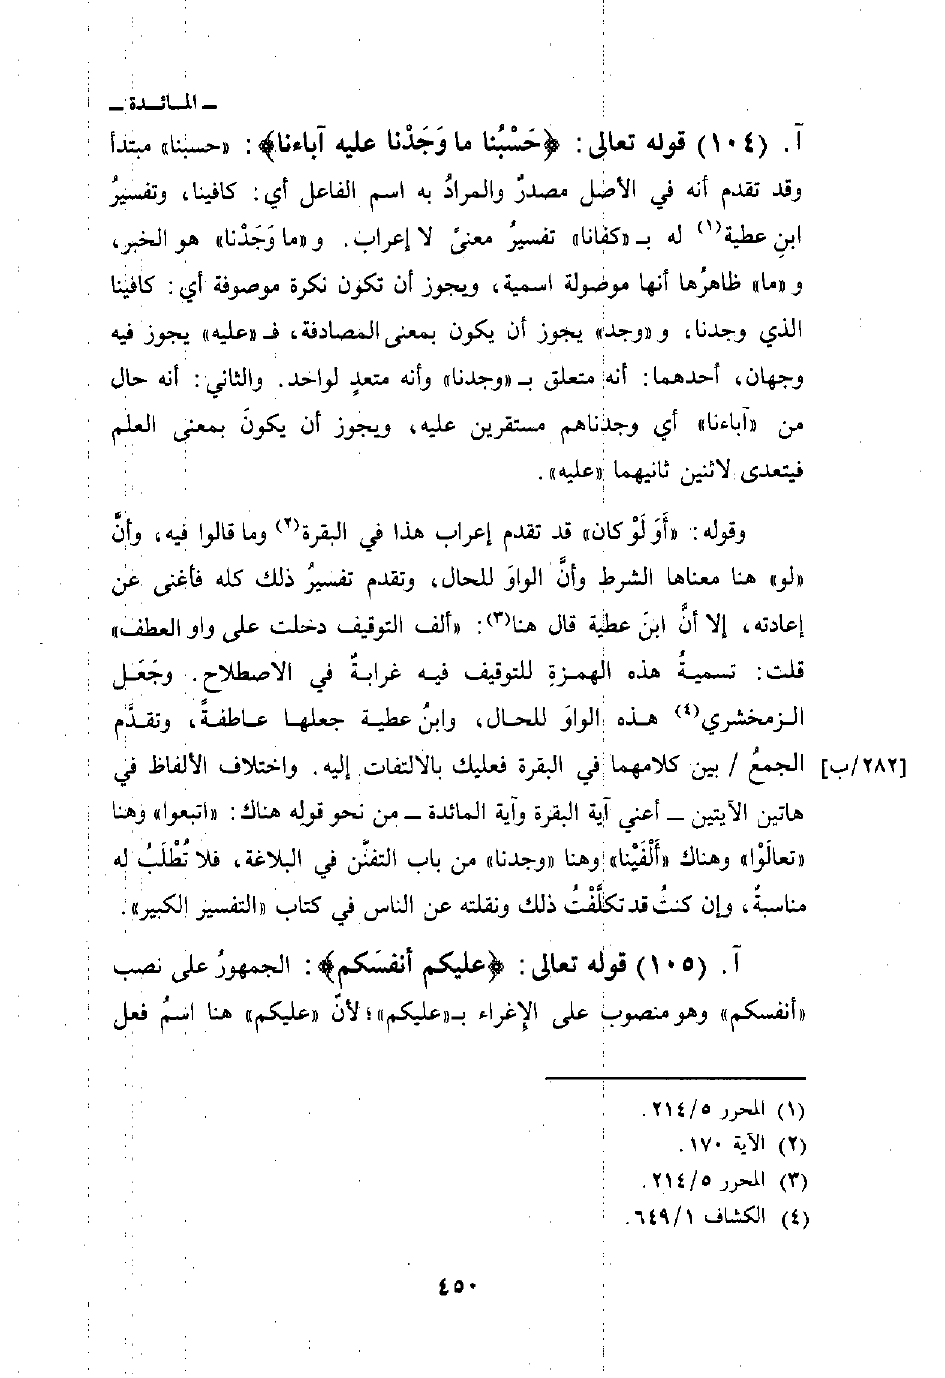 ـ المـائـدة ـ
آ. (١٠٤) قوله تعالى: ﴿حَسْبُنا ما وَجَدْنا عليه آباءنا﴾: «حسبنا» مبتدأ
وقد تقدم أنه في الأصل مصدرٌ والمرادُ به اسم الفاعل أي: كافينا، وتفسيرُ
ابنِ عطية(١) له بـ «كفانا» تفسيرُ معنىً لا إعراب. و «ما وَجَدْنا» هو الخبر،
و «ما» ظاهرُها أنها موصولة اسمية، ويجوز أن تكون نكرة موصوفة أي: كافينا
الذي وجدنا، و «وجد» يجوز أن يكون بمعنى المصادفة، فـ «عليه» يجوز فيه
وجهان، أحدهما: أنه متعلق بـ «وجدنا» وأنه متعدٍ لواحد. والثاني: أنه حال
من «آباءنا» أي وجدناهم مستقرين عليه، ويجوز أن يكونَ بمعنى العلم
فيتعدى لاثنين ثانيهما «عليه».
وقوله: «أَوَ لَوْ كان» قد تقدم إعراب هذا في البقرة(٢) وما قالوا فيه، وأنَّ
«لو» هنا معناها الشرط وأنَّ الواوَ للحال، وتقدم تفسيرُ ذلك كله فأغنى عن
إعادته، إلا أنَّ ابنَ عطية قال هنا(٣): «ألف التوقيف دخلت على واو العطف»
قلت: تسميةُ هذه الهمزةِ للتوقيف فيه غرابةٌ في الاصطلاح. وجَعَل
الزمخشري(٤) هذه الواوَ للحال، وابنُ عطية جعلها عاطفةً، وتقدَّم
[٢٨٢/ب] الجمعُ / بين كلامهما في البقرة فعليك بالالتفات إليه. واختلاف الألفاظ في
هاتين الآيتين ـ أعني آية البقرة وآية المائدة ـ من نحو قوله هناك: «اتبعوا» وهنا
«تعالَوْا» وهناك «أَلْفَيْنا» وهنا «وجدنا» من باب التفنّن في البلاغة، فلا تُطْلَبُ له
مناسبةٌ، وإن كنتُ قد تكلَّفْتُ ذلك ونقلته عن الناس في كتاب «التفسير الكبير».
آ. (١٠٥) قوله تعالى: ﴿عليكم أنفسَكم﴾: الجمهورُ على نصب
«أنفسكم» وهو منصوب على الإِغراء بـ«عليكم»؛ لأنَّ «عليكم» هنا اسمُ فعل
(١) المحرر ٢١٤/٥.
(٢) الآية ١٧٠.
(٣) المحرر ٢١٤/٥.
(٤) الكشاف ٦٤٩/١.
٤٥٠